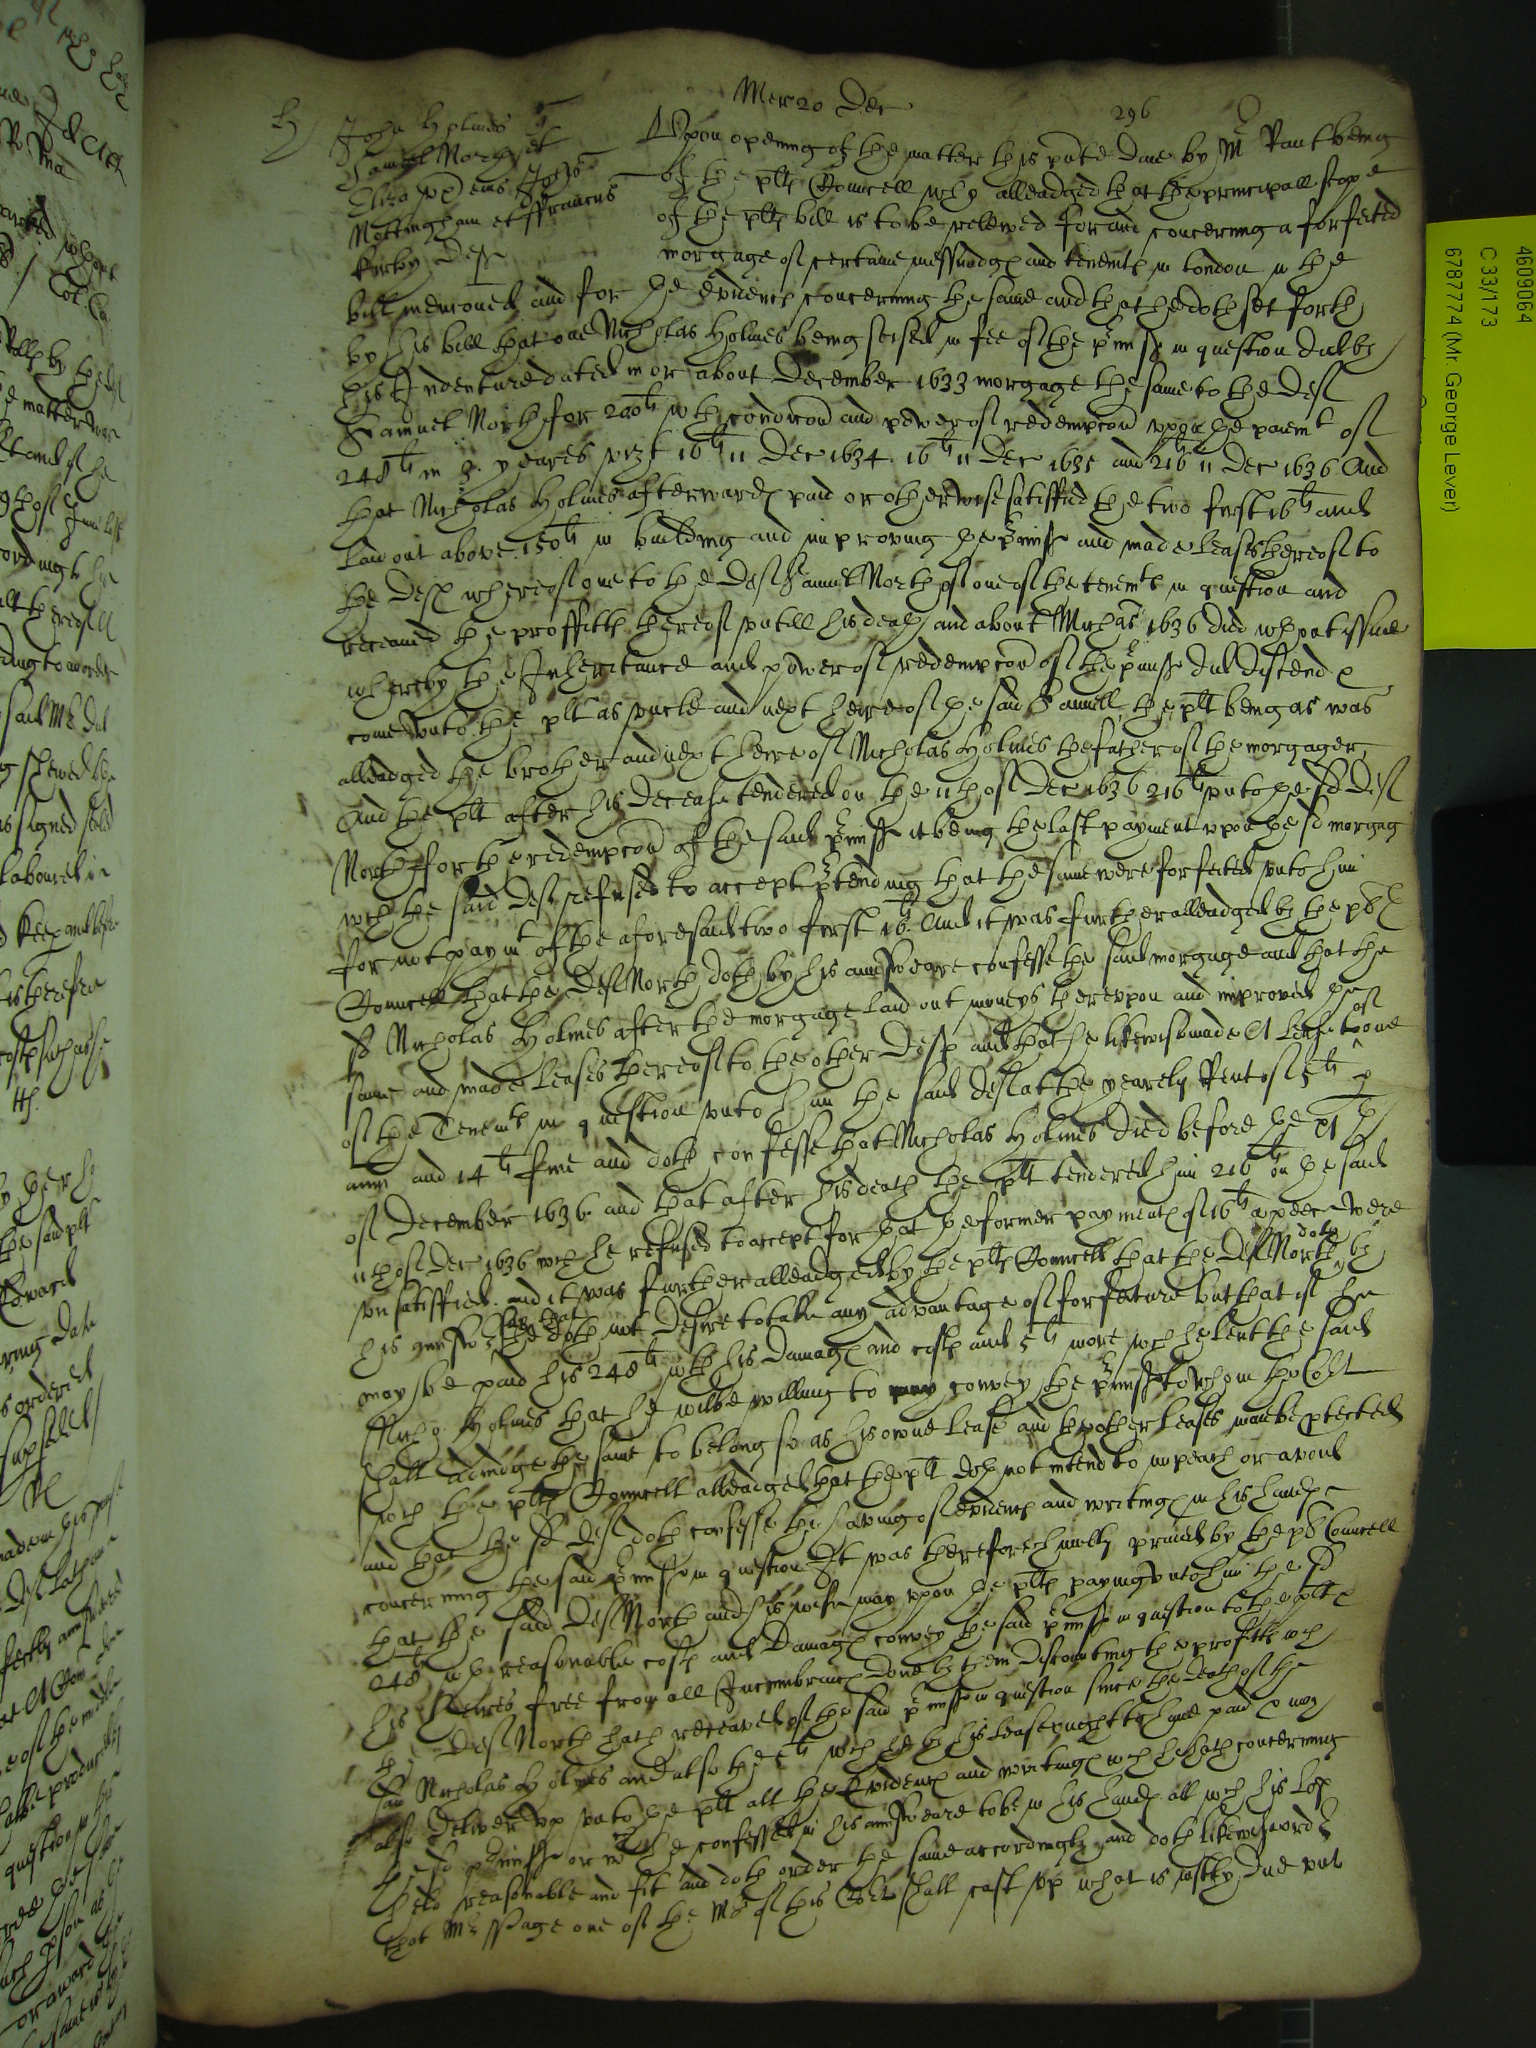 Mer 20 Dec
296
John Holmes q
Samuel North et
Eliza ux eius John
Nottingham et ffrancus
Kirby Def
Upon opening of the matter this pnte daie by Mr Rant being
of the plts Councell who alleadged that the principall scope
of the plts bill is to be releived for and concerning a forfeited
morgage of certaine messuages and tenemts in London in the
bill mencioned and for the evidences concerning the same and that he doth set forth
by his bill that one Nicholas Holmes being seised in fee of the pmisses in question did by
his Indenture dated in or about December 1633 morgage the same to the Deft
Samuel North for 200li wth condicion and power of redempcion upon the paiemt of
248li in 3 yeares vizt 16li 11 Dec 1634 16li 11 Dec 1635 and 216li 11 Dec 1636 And
that Nicholas Holmes afterwards paid or otherwise satisfied the two first 16li and
laid out above 150li in building and improving the pmisses and made leases thereof to
the Defts whereof one to the Deft Samuel North of one of the tenemts in question and
received the proffitts thereof untill his death and about Michas 1636 died wthout issue
whereby the Inheritance and power of redempcion of the pmisses did discend &
come unto the plt as uncle and next heire of the said Samuell the plt being as was
alleadged the brother and next heire of Nicholas Holmes the father of the morgager
And the plt after his decease tendered on the 11th of Dec 1636 216li unto the sd Deft
North for the redempcion of the said pmisses it being the last payment upon the sd morgag
wch the said Deft refused to accept ptending that the same were forfeited unto him
for not paymt of the aforesaid two first 16li And it was further alleadged by the plts
Councell that the Deft North doth by his answeare confesse the said morgage and that the
sd Nicholas Holmes after the morgage laid out moneys thereupon and improved the
same and made leases thereof to the other Defts and that he likewise made A lease of one
of the Tenemts in question unto him the said Deft at the yearely Rent of 5li p
ann and 14li fine and doth confesse that Nicholas Holmes died before the 11th
of December 1636 and that after his death the plt tendered him 216li on the said
11th of Dec 1636 wch he refused to accept for that the former payments of 16li a peece were
unsatisfied and it was further alleadged by the plts Councell that the Deft North doth by
his answere say that he doth not desire to take any advantage of forfeiture but that if hee
may be paid his 248li wth his damages and costs and 5li more wch he lent the said
Nicho Holmes that he wilbe willing to convey the pmisses to whom the Cort
shall adiudge the same to belong so as his owne lease and the other leases may be ptected
wch the plts Councell alleadged that the plt doth not intend to impeach or avoid
and that the sd Deft doth confesse the having of evidences and writings in his hands
concerning the said pmisses in question It was therefore humbly praied by the plts Councell
that the said Deft North and his wife may upon the plts paying unto him the sd
248li wth reasonable costs and Damages convey the said pmisses in question to the plt &
his heires free from all Incumbrances done by them discounting the profitts wch
the Deft North hath received of the said pmisses in question since the death of the
said Nicholas Holmes and also the 5li wch he by his lease ought to have paid & may
also deliver up unto the plt all the Evidences and writings wch he hath concerning
the sd pmisses or wch he confesseth in his answeare to be in his hands all wch his Lop
held reasonable and fit and doth order the same accordingly and doth likewise order
that Mr Page one of the Mrs of this Cort shall cast up what is iustly due unto
4609064
C 33/173
6787774 (Mr. George Lever)